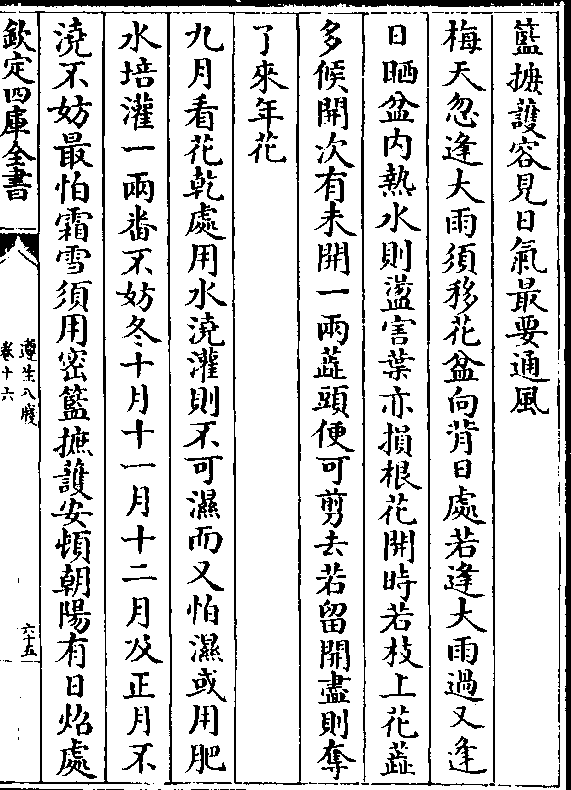 藍摭護容見日氣最要通風
梅天忽逢大雨須移花盆向背日處若逢大雨過又逢
日晒盆内熱水則蕩害葉亦損根花開時若枝上花蕋
多候開次有未開一兩蕋頭便可剪去若留開盡則奪
了來年花
九月看花乾處用水澆灌則不可濕而又怕濕或用肥
水培灌一兩畨不妨冬十月十一月十二月及正月不
澆不妨最怕霜雪須用密籃摭護安頓朝陽有日炤處
欽定四庫全書
遵生八牋
卷十六
六十五